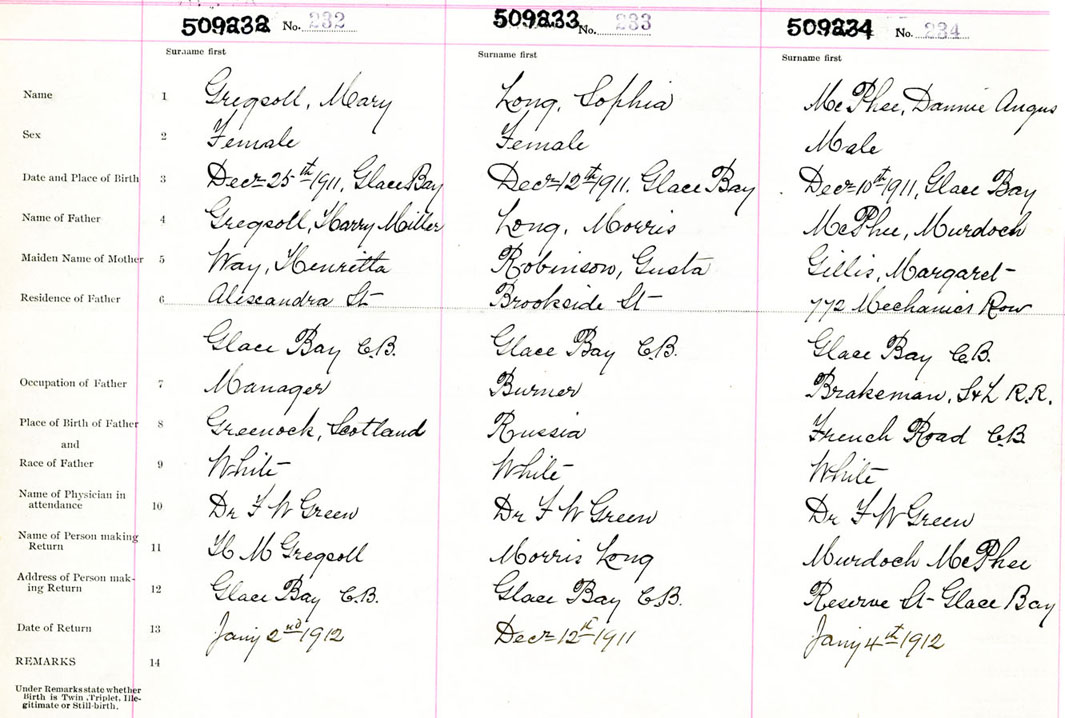 509232 No. 232 509233 No. 233 509234 No. 234
Surname first Surname first Surname first
Name 1 Gregsoll, Mary Long, Sophia McPhee, Dannie Angus
Sex 2 Female Female Male
Date and Place of Birth 3 Decr 25th 1911, Glace Bay Decr 12th 1911, Glace Bay Decr 10th 1911, Glace Bay
Name of Father 4 Gregsoll, Harry Miller Long, Morris McPhee, Murdoch
Maiden Name of Mother 5 Way, Henritta Robinson, Gusta Gillis, Margaret
Residence of Father 6 Alixandra St Brookside St 772 Mechanics Row
Glace Bay C.B. Glace Bay C.B. Glace Bay C.B.
Occupation of Father 7 Manager Burner Brakeman, S&L R.R.
Place of Birth of Father 8 Greenock, Scotland Russia French Road C.B
and
Race of Father 9 White White White
Name of Physician in
attendance 10 Dr F W Green Dr F W Green Dr F W Green
Name of Person making
Return 11 H M Gregsoll Morris Long Murdoch McPhee
Address of Person mak-
ing Return 12 Glace Bay C.B. Glace Bay C.B. Reserve St Glace Bay
Date of Return 13 Jany 2nd 1912 Decr 12th 1911 Jany 4th 1912
REMARKS 14
Under Remarks state whether
Birth is Twin, Triplet, Ille-
gitimate or Still-birth.